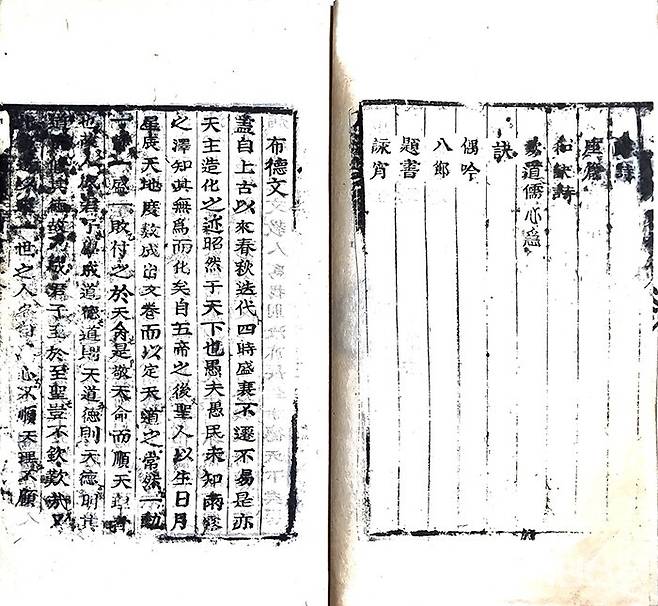 座箴
和訣詩
歎道儒心急
訣
偶吟
八節
題書
詠宵
布德文
蓋自上古以來春秋迭代四時盛衰不遷不易是亦
天主造化之迹昭然于天下也愚夫愚民未知雨露
之澤知其無爲而化矣自五帝之後聖人以生日月
星辰天地度數成出文卷而以定天道之常然一動
一靜一盛一敗付之於天命是敬天命而順天理者
也故人成君子學成道德道則天道德則天德明其
其德故乃成君子至於至聖豈不欽歎哉又
一世之人各自心不順天理不顧